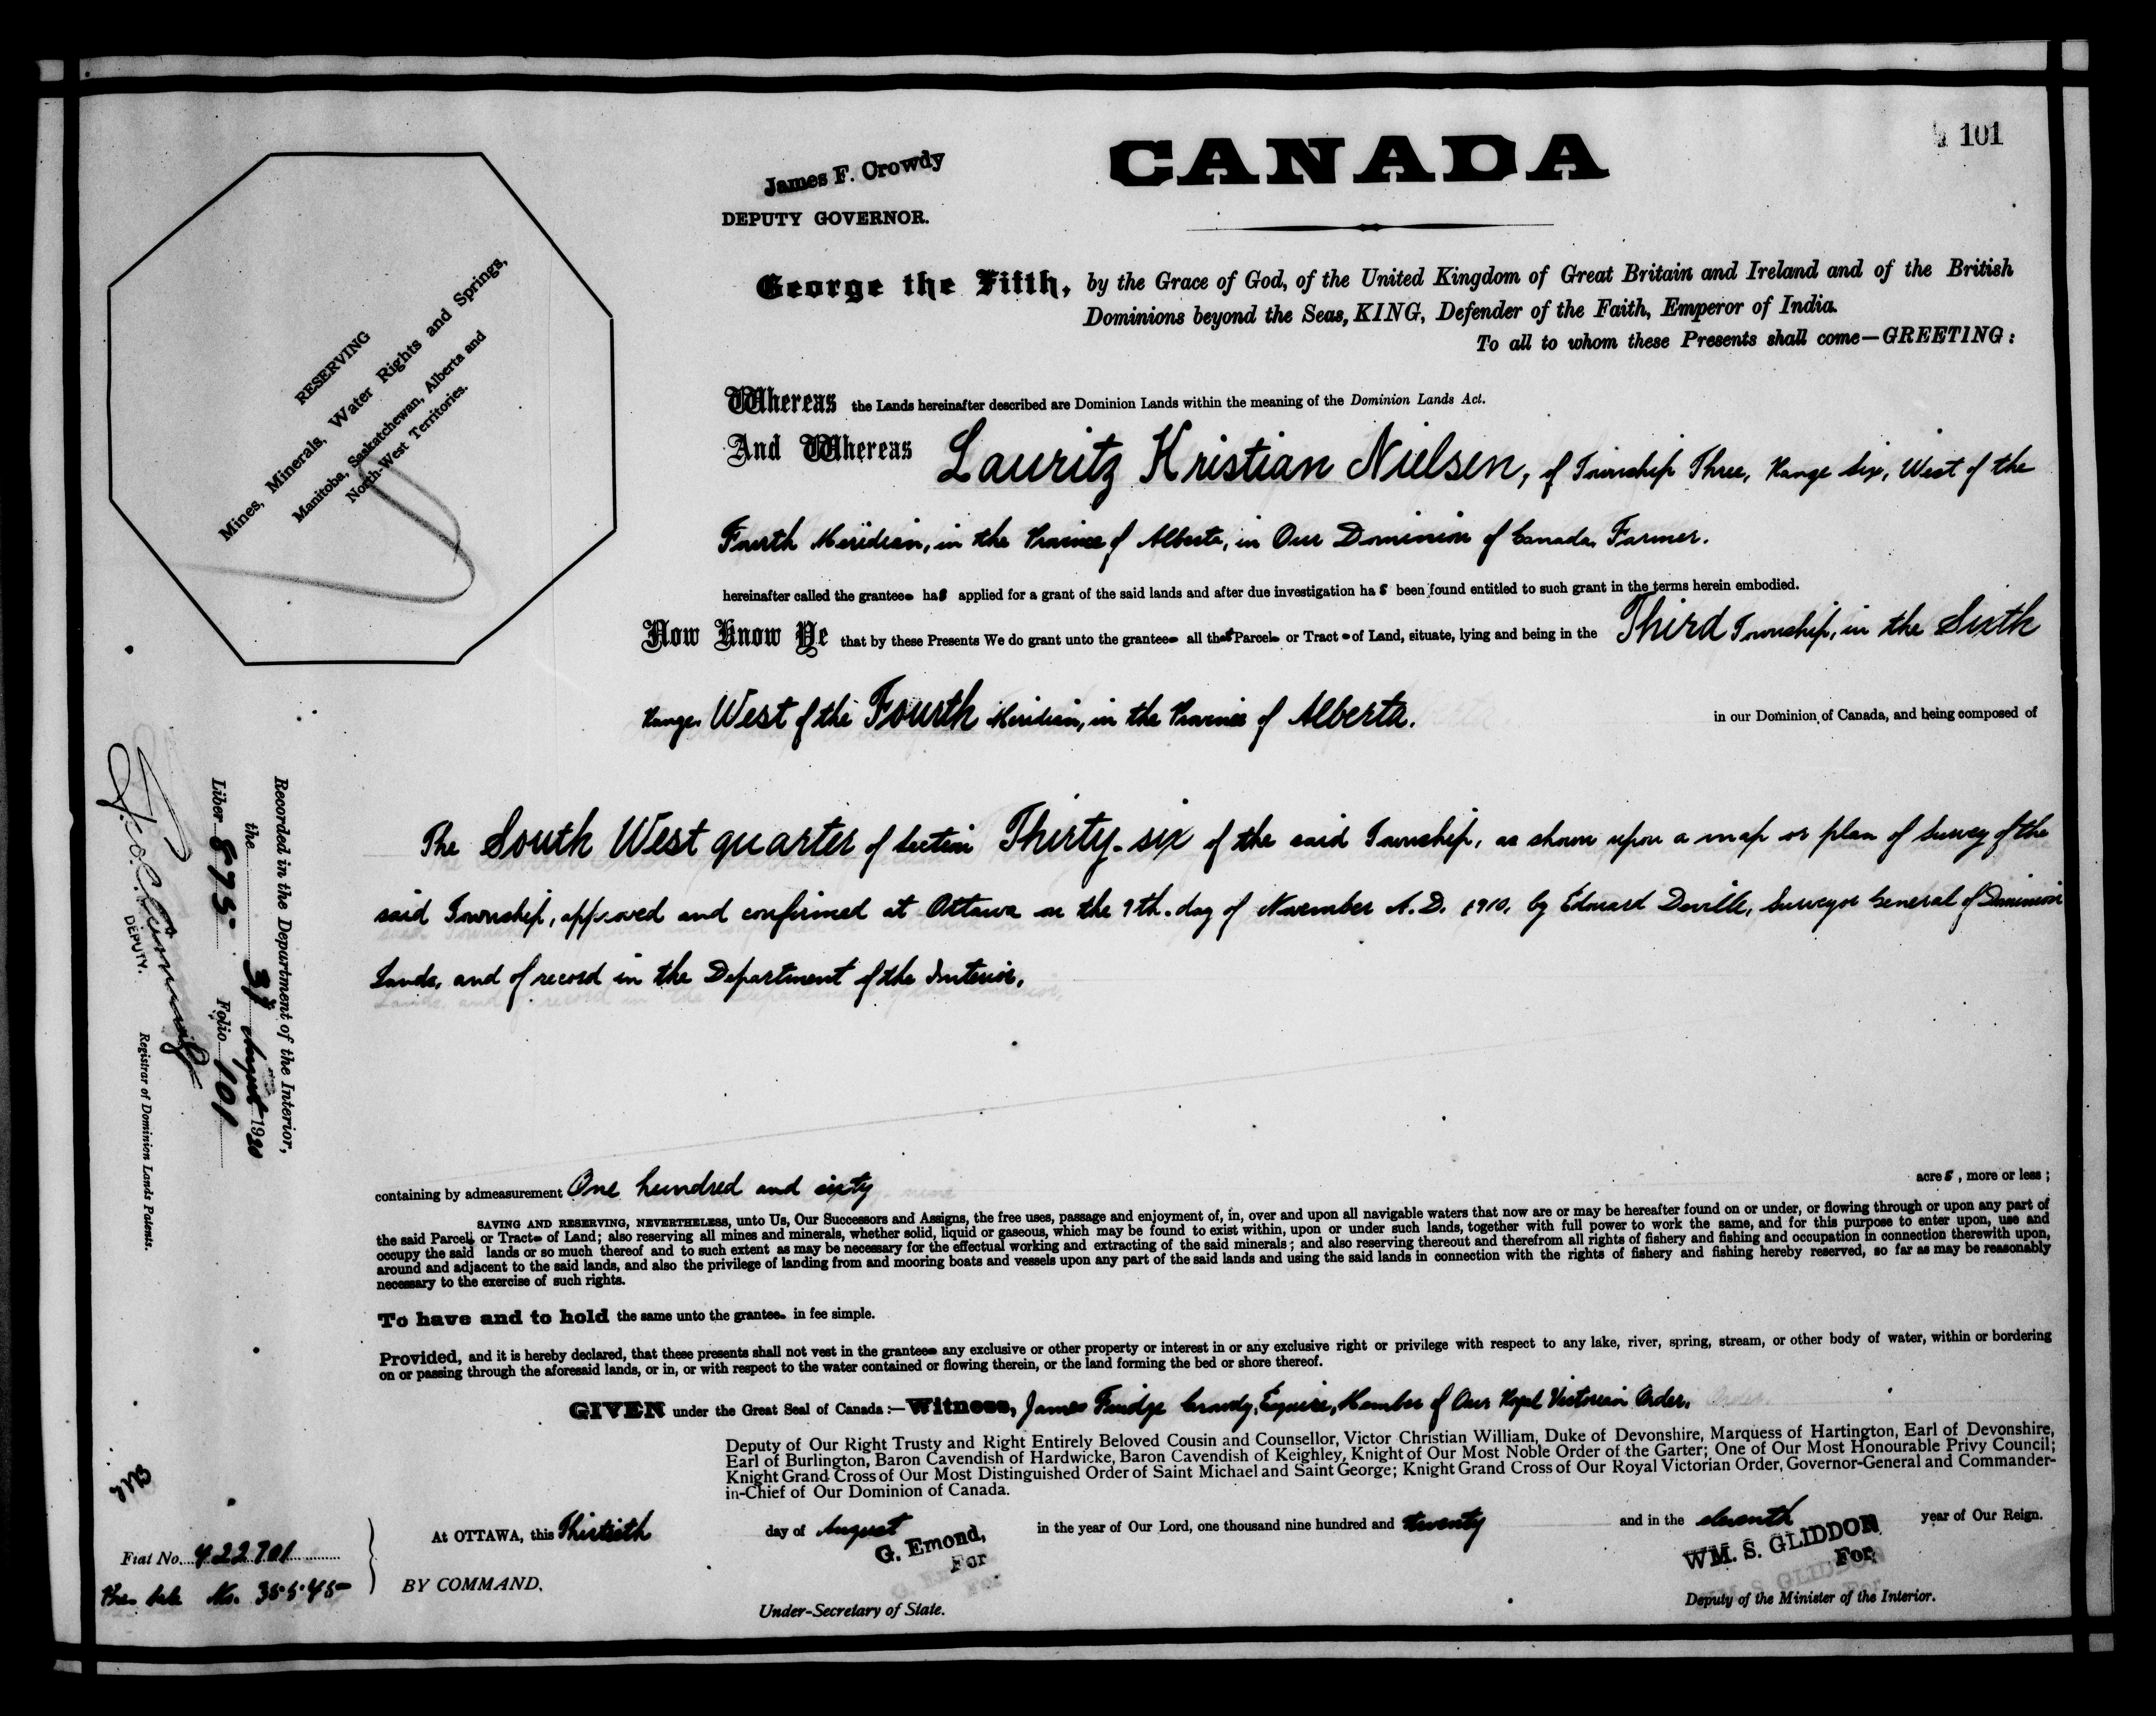 101
CANADA
James F. Crowdy
DEPUTY GOVERNOR.
RESERVING
Mines, Minerals, Water Rights and Springs,
Manitoba, Saskatchewan, Alberta and
North-West Territories.
George the Fifth, by the Grace of God, of the United Kingdom of Great Britain and Ireland and of the British
Dominions beyond the Seas, KING, Defender of the Faith, Emperor of India.
To all to whom these Presents shall come—GREETING:
Whereas the Lands hereinafter described are Dominion Lands within the meaning of the Dominion Lands Act.
And Whereas Lauritz Kristian Nielsen, of Township Three, Range Six, West of the
Fourth Meridian, in the Province of Alberta, in Our Dominion of Canada, Farmer.
hereinafter called the grantee has applied for a grant of the said lands and after due investigation has been found entitled to such grant in the terms herein embodied.
Now Know Ye that by these Presents We do grant unto the grantee all that Parcel or Tract of Land, situate, lying and being in the Third Township, in the Sixth
Range, West of the Fourth Meridian, in the Province of Alberta. in our Dominion of Canada, and being composed of
The South West quarter of Section Thirty-six of the said Township, as shown upon a map or plan of Survey of the
said Township, approved and confirmed at Ottawa on the 9th. day of November A.D. 1910, by Edouard Deville, Surveyor General of Dominion
Lands, and of record in the Department of the Interior,
containing by admeasurement One hundred and sixty acres, more or less;
SAVING AND RESERVING, NEVERTHELESS, unto Us, Our Successors and Assigns, the free uses, passage and enjoyment of, in, over and upon all navigable waters that now are or may be hereafter found on or under, or flowing through or upon any part of
the said Parcel or Tract of Land; also reserving all mines and minerals, whether solid, liquid or gaseous, which may be found to exist within, upon or under such lands, together with full power to work the same, and for this purpose to enter upon, use and
occupy the said lands or so much thereof and to such extent as may be necessary for the effectual working and extracting of the said minerals; and also reserving thereout and therefrom all rights of fishery and fishing and occupation in connection therewith upon,
around and adjacent to the said lands, and also the privilege of landing from and mooring boats and vessels upon any part of the said lands and using the said lands in connection with the rights of fishery and fishing hereby reserved, so far as may be reasonably
necessary to the exercise of such rights.
To have and to hold the same unto the grantee in fee simple.
Provided, and it is hereby declared, that these presents shall not vest in the grantee any exclusive or other property or interest in or any exclusive right or privilege with respect to any lake, river, spring, stream, or other body of water, within or bordering
on or passing through the aforesaid lands, or in, or with respect to the water contained or flowing therein, or the land forming the bed or shore thereof.
GIVEN under the Great Seal of Canada:—Witness, James Fuidge Crowdy, Esquire, Member of Our Royal Victorian Order.
Deputy of Our Right Trusty and Right Entirely Beloved Cousin and Counsellor, Victor Christian William, Duke of Devonshire, Marquess of Hartington, Earl of Devonshire,
Earl of Burlington, Baron Cavendish of Hardwicke, Baron Cavendish of Keighley, Knight of Our Most Noble Order of the Garter; One of Our Most Honourable Privy Council;
Knight Grand Cross of Our Most Distinguished Order of Saint Michael and Saint George; Knight Grand Cross of Our Royal Victorian Order, Governor-General and Commander-
in-Chief of Our Dominion of Canada.
At OTTAWA, this Thirtieth day of August in the year of Our Lord, one thousand nine hundred and twenty and in the eleventh year of Our Reign.
BY COMMAND.
G. Emond,
For
Under-Secretary of State.
WM. S. GLIDDON
For
Deputy of the Minister of the Interior.
Recorded in the Department of the Interior,
the 31 August 1920
Liber 875 Folio 101
DEPUTY.
Registrar of Dominion Lands Patents.
Fiat No. 422701
No. 35545